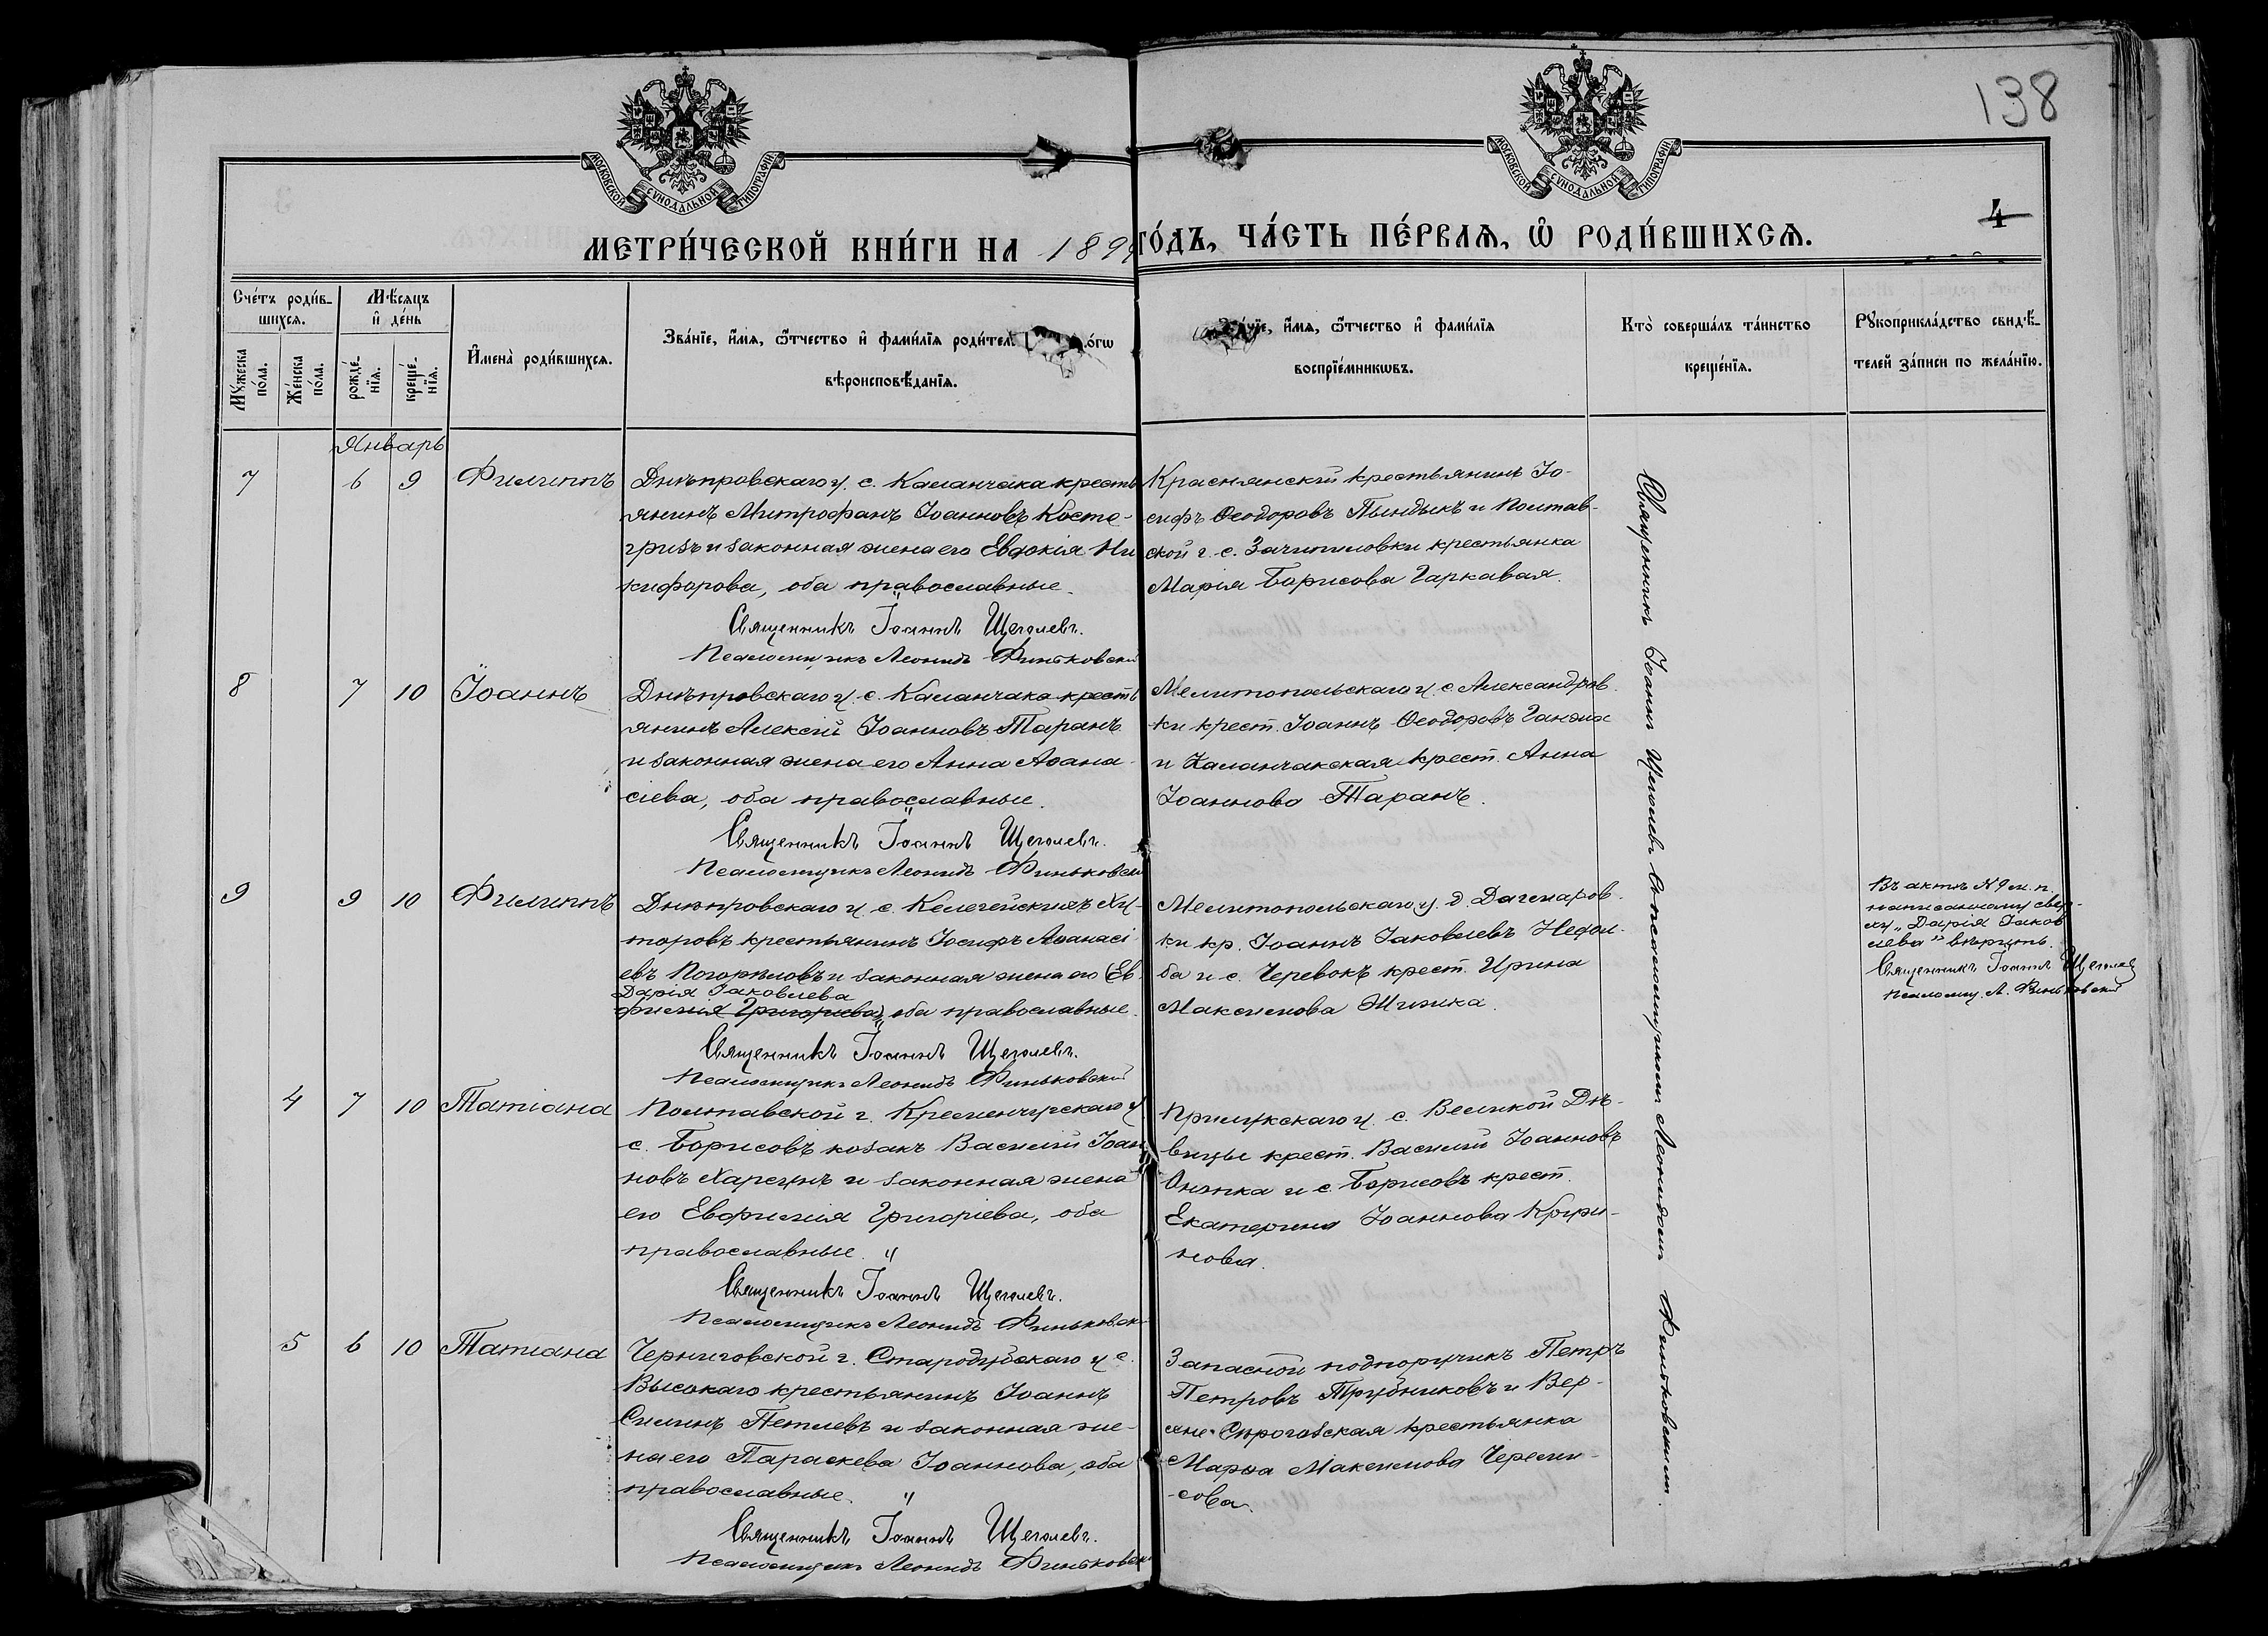 138
МОСКОВСКОЙ СѴНОДАЛЬНОЙ ТИПОГРАФІИ
МОСКОВСКОЙ СѴНОДАЛЬНОЙ ТИПОГРАФІИ
4
МЕТРИ́ЧЕСКОЙ КНИ́ГИ НА 1899 ГО́ДЪ, ЧА́СТЬ ПЕ́РВАѦ, Ѡ҆ РОДИ́ВШИХСѦ.
Сче́тъ роди́в-
шихсѧ.
Мꙋ́жеска по́ла.
Же́нска по́ла.
Мѣ́сѧцъ и҆ де́нь
рожде́-
нїѧ.
креще́-
нїѧ.
И҆мена̀ роди́вшихсѧ.
Зва́нїе, и҆́мѧ, ѻ҆́тчество и҆ фами́лїѧ родител
вѣроисповѣ́данїѧ.
и҆́мѧ, ѻ҆́тчество и҆ фами́лїѧ
воспрїе́мникѡвъ.
Кто̀ соверша́лъ та́инство
креще́нїѧ.
Рꙋкоприкла́дство свидѣ́-
телей за́писи по жела́нїю.
Январь
7 6 9 Филиппъ
Днѣпровскаго у. с. Каланчака кресть
янинъ Митрофанъ Іоанновъ Косте-
гризъ и законная жена его Евдокія Ни
кифорова, оба православные.
Священникъ Іоаннъ Щеголевъ.
Псаломщикъ Леонидъ Финьковскій
Краснянскій крестьянинъ Іо-
сифъ Ѳеодоровъ Пындыкъ и Полтав-
ской г. с. Зачипиловки крестьянка
Марія Борисова Гаркавая.
8 7 10 Іоаннъ
Днѣпровскаго у. с. Каланчака кресть
янинъ Алексій Іоанновъ Таранъ
и законная жена его Анна Аѳана-
сіева, оба православные.
Священникъ Іоаннъ Щеголевъ.
Псаломщикъ Леонидъ Финьковскій
Мелитопольскаго у. с. Александров-
ки крест. Іоаннъ Ѳеодоровъ Ганжа
и Каланчакская крест. Анна
Іоаннова Таранъ.
9 9 10 Филиппъ
Днѣпровскаго у. с. Келегейскихъ Ху-
торовъ крестьянинъ Іосифъ Аѳанасі-
евъ Погорѣловъ и законная жена его (Ев-
Дарія Іаковлева
фимія Григоріева), оба православные.
Священникъ Іоаннъ Щеголевъ.
Псаломщикъ Леонидъ Финьковскій
Мелитопольскаго у. д. Дагмаров-
ки кр. Іоаннъ Іаковлевъ Недол-
ба и с. Черевокъ крест. Ирина
Максимова Жижка.
Въ актѣ № 9 м. п.
написанному свер-
ху „Дарія Іаков-
лева" вѣрить.
Священникъ Іоаннъ Щеголев
Псаломщ. Л. Финьковскій
4 7 10 Татіана
Полтавской г. Кременчугскаго у.
с. Борисовъ козакъ Василій Іоан-
новъ Харсунъ и законная жена
его Евфимія Григоріева, оба
православные.
Священникъ Іоаннъ Щеголевъ.
Псаломщикъ Леонидъ Финьковскій
Прилукскаго у. с. Великой Дѣ-
вицы крест. Василій Іоанновъ
и с. Борисовъ крест.
Екатерина Іоаннова
нова.
5 6 10 Татіана
Черниговской г. Стародубскаго у. с.
Высокаго крестьянинъ Іоаннъ
Силинъ Петлевъ и законная же-
на его Параскева Іоаннова, оба
православные.
Священникъ Іоаннъ Щеголевъ.
Псаломщикъ Леонидъ Финьковскій
Запасной подпоручикъ Петръ
Петровъ Трубниковъ и Вер-
хне-Сѣрогозская крестьянка
Марѳа Максимова Череми-
сова.
Священникъ Іоаннъ Щеголевъ съ псаломщикомъ Леонидомъ Финьковскимъ.